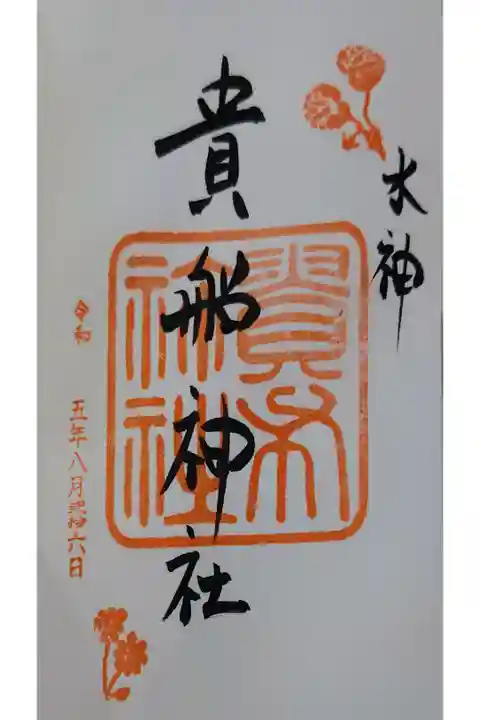 水神
貴船神社
貴布祢社
令和 五年八月弐拾六日